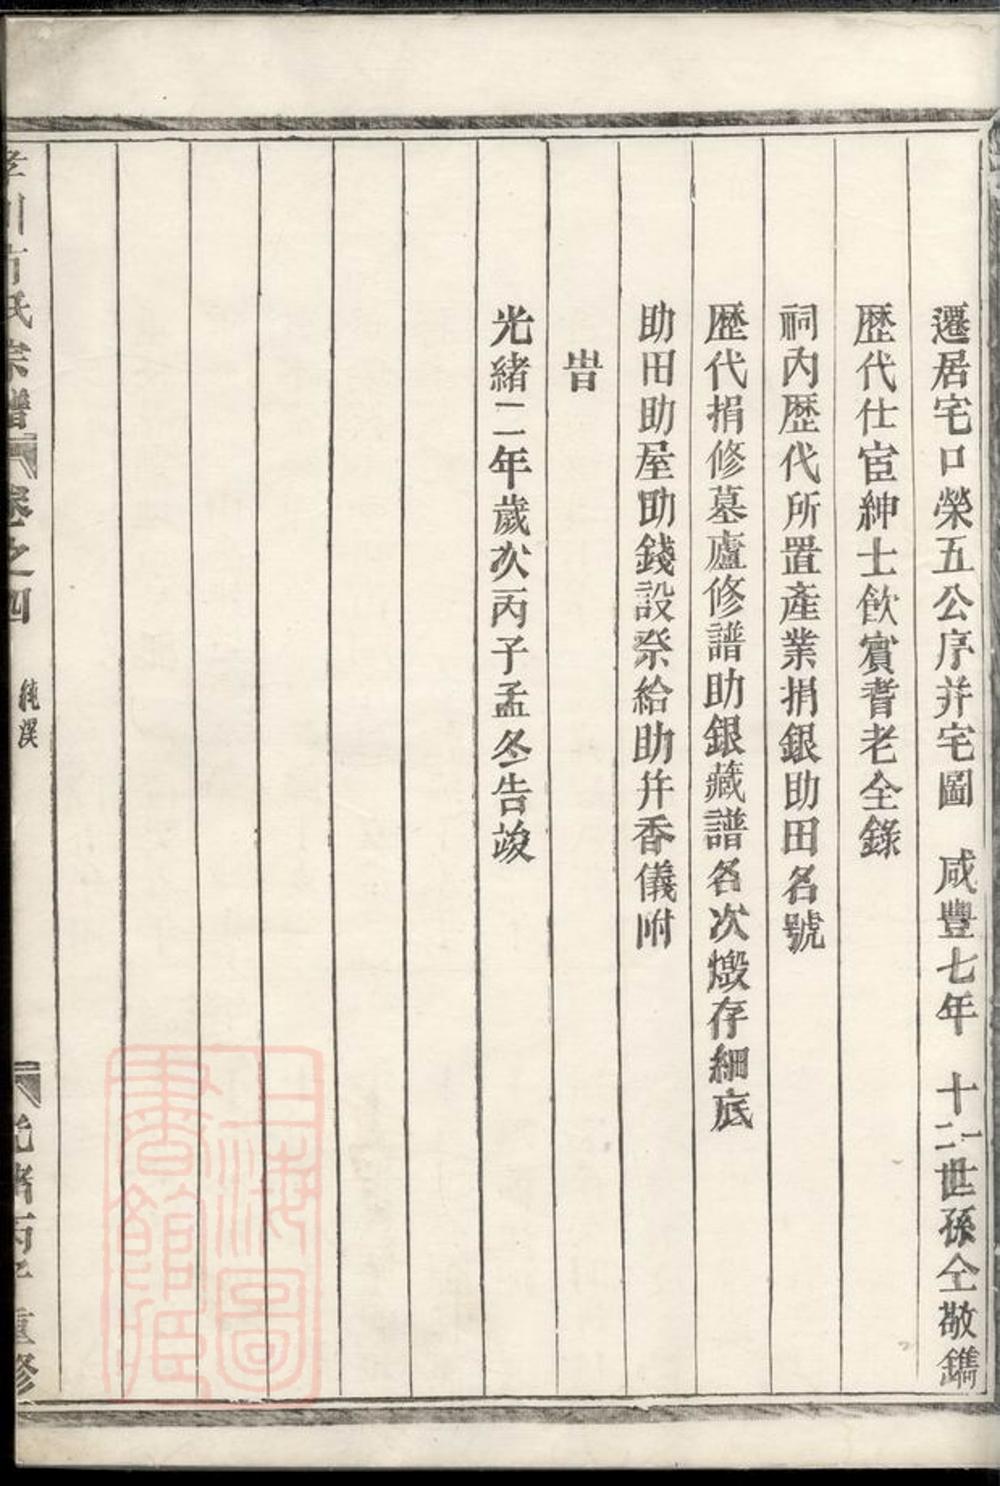 遷居宅口榮五公序并宅圖　咸豐七年　十二世孫仝敬鐫
歷代仕宦紳士飲賓耆老全錄
祠內歷代所置產業捐銀助田名號
歷代捐修墓廬修譜助銀藏譜各次燬存細底
助田助屋助錢設祭給助并香儀附
旹
光緒二年歲次丙子孟冬告竣
氏宗譜　卷之四　純溪　光緒丙子　重修
上海圖書館藏